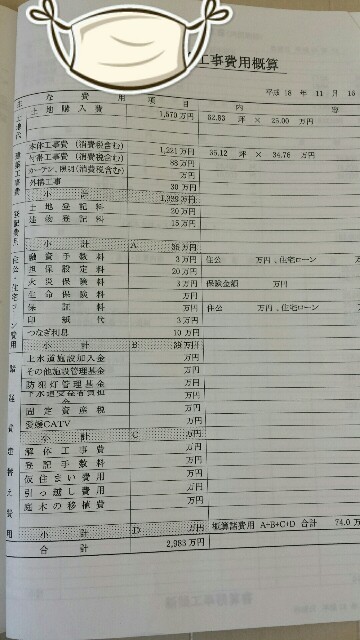 工事費用概算
平成 18 年 11 月 16
主 な 費 用 項 目 内 容
土地代 土 地 購 入 費 1,570万円 62.83 坪 × 25.00 万円
建築工事費 本体工事費（消費税含む） 1,221万円 35.12 坪 × 34.76 万円
付帯工事費（消費税含む） 88万円
カーテン、照明（消費税含む） 万円
外構工事 30 万円
小 計 1,339万円
登記費用 土 地 登 記 料 20万円
建 物 登 記 料 15万円
小 計 A 35万円
住公・住宅ローン費用 融 資 手 数 料 3万円 住公 万円，住宅ローン
担 保 設 定 料 20万円
火 災 保 険 料 3万円 保険金額 万円
生 命 保 険 料 万円
保 証 料 万円 住公 万円，住宅ローン
印 紙 代 3万円
つなぎ利息 10万円
小 計 B 39万円
諸 経 費 上水道施設加入金 万円
その他施設管理基金 万円
防犯灯管理基金 万円
下水道受益者負担金 万円
固 定 資 産 税 万円
愛媛CATV 万円
小 計 C 万円
建 替 え 費 用 解 体 工 事 費 万円
登 記 手 数 料 万円
仮 住 ま い 費 用 万円
引 っ 越 し 費 用 万円
庭 木 の 移 植 費 万円
小 計 D 万円 概算諸費用 A+B+C+D 合計 74.0万
合 計 2,983万円